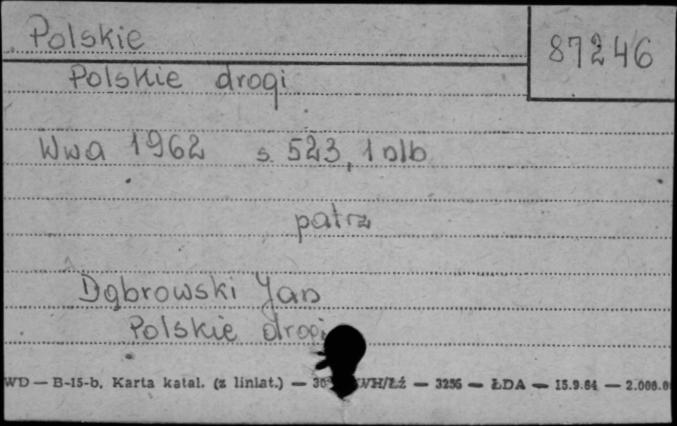 Polskie
87246
Polskie drogi
Wwa 1962 s. 523, 1 nlb
patrz
Dąbrowski Jan
Polskie drogi
WD — B-15-b. Karta katal. (z liniat.) — WH/Łż — 3256 — ŁDA — 15.9.64 —